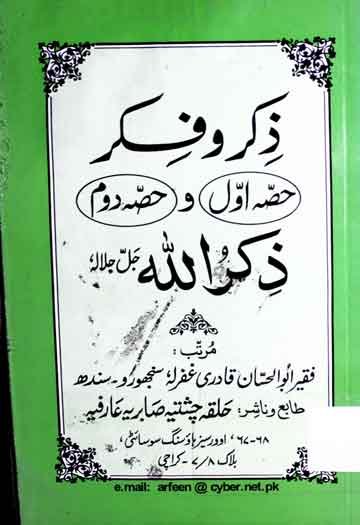 ذِکر و فِکر
حصّہ اوّل و حصّہ دوم
ذِکرُ اللہ جَلّ جلالہٗ
مُرتّب:
فقیر ابوالحسّان قادری غفرلہٗ سنجھورو۔سندھ
طابع و ناشر: حلقہ چشتیہ صابریہ عارفیہ
۶۷-۶۸، اوورسیز ہاؤسنگ سوسائٹی،
بلاک ۷/۸-کراچی
e.mail: arfeen @ cyber.net.pk